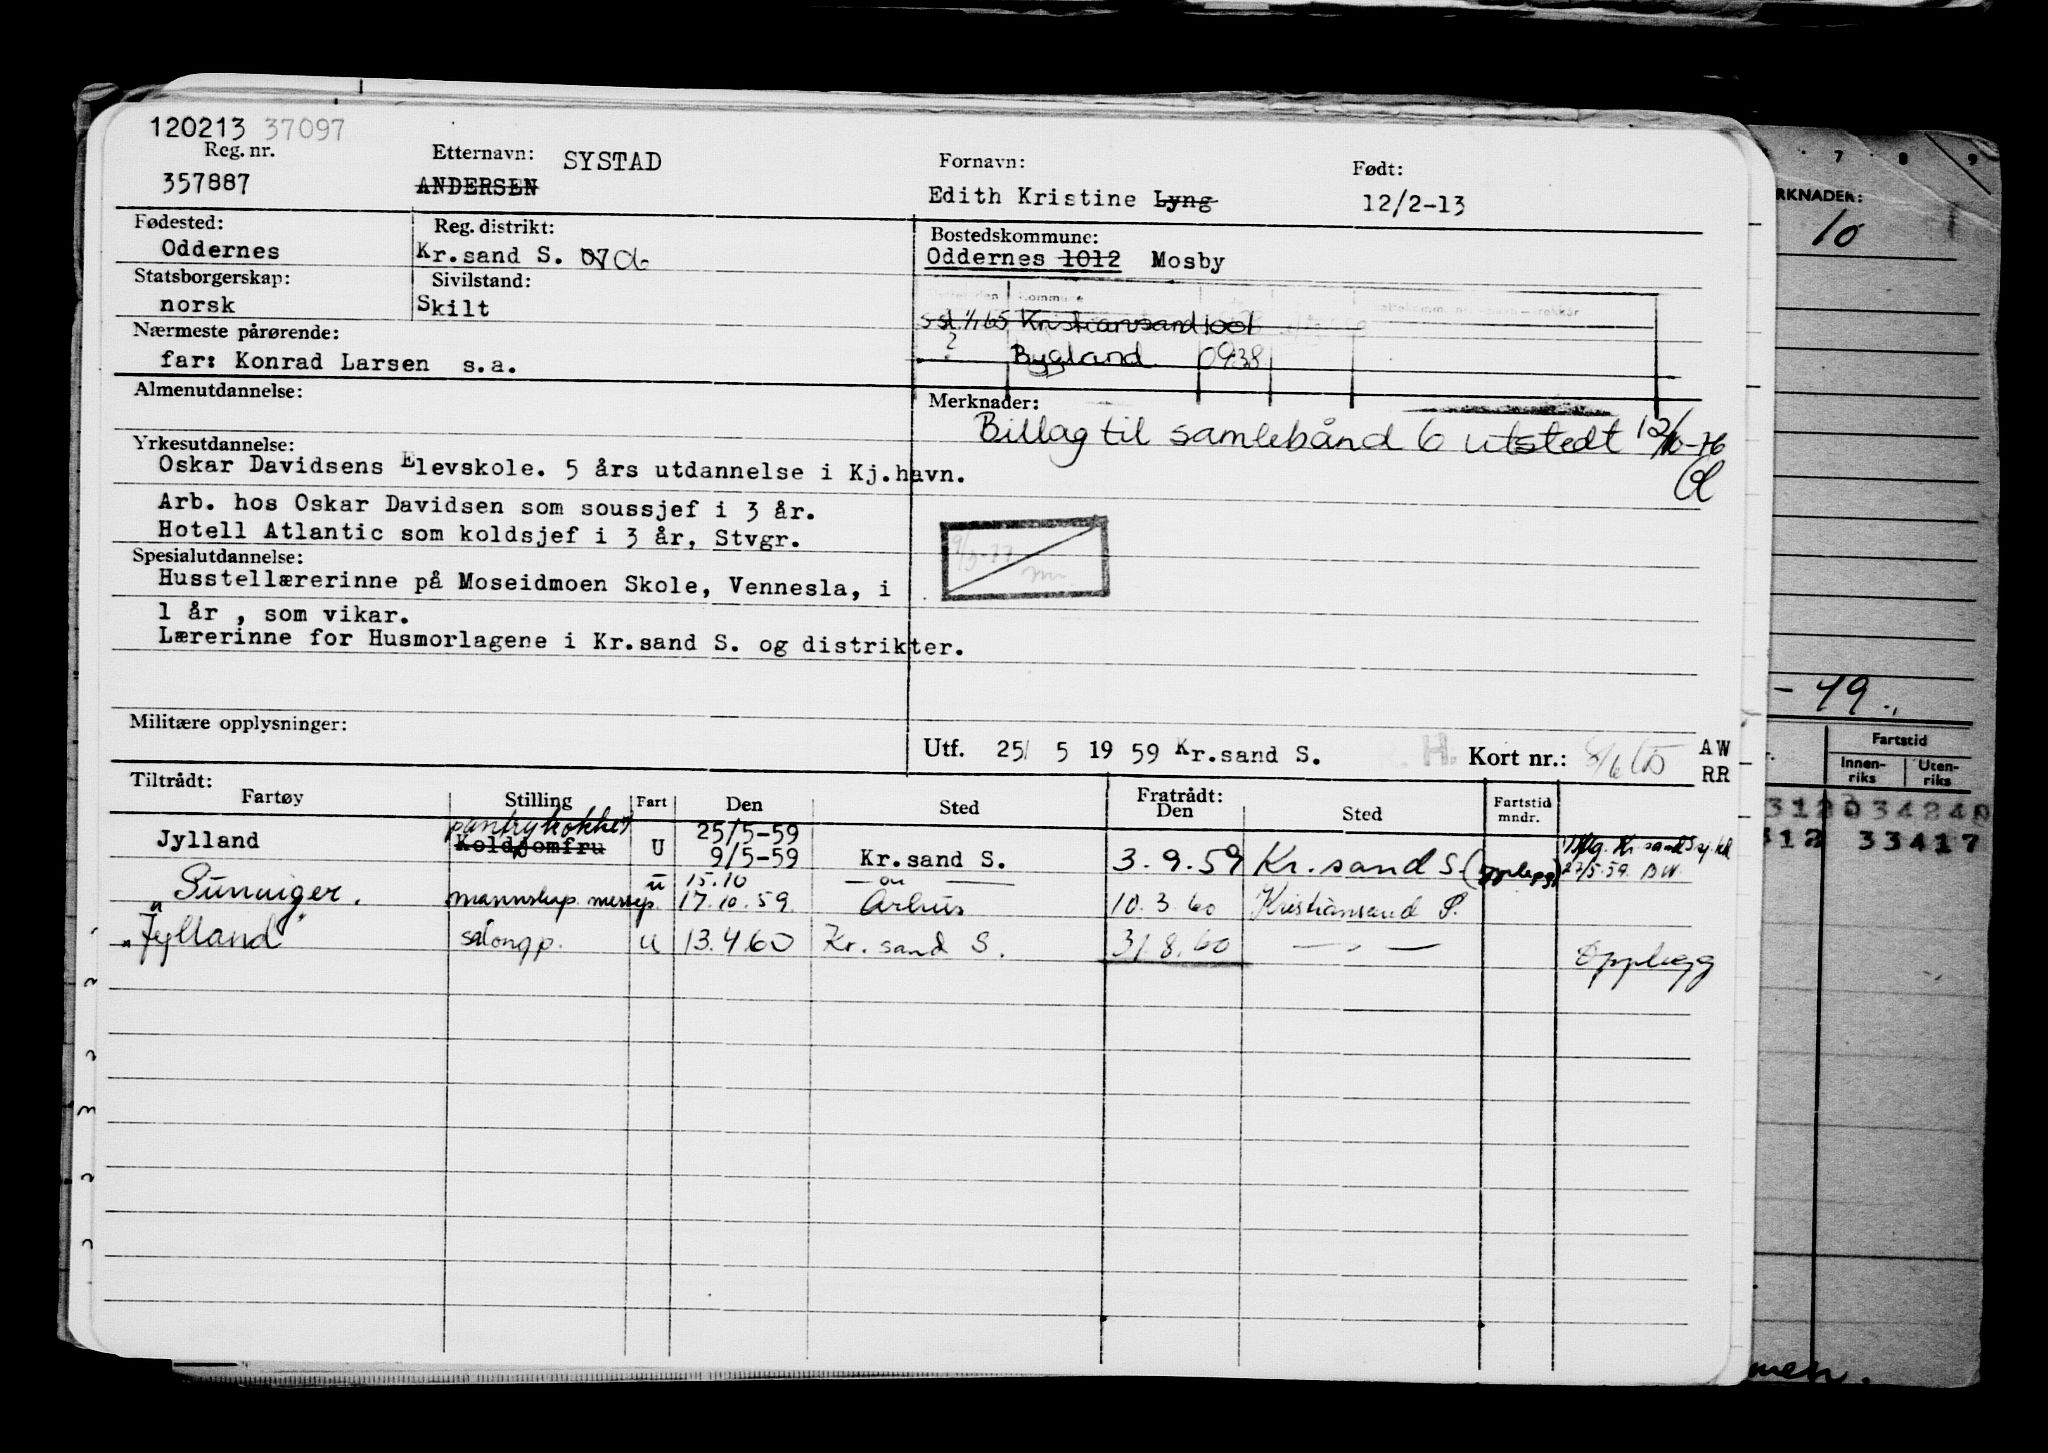 120213 37097
Reg. nr.
357887
Etternavn: SYSTAD
ANDERSEN
Fornavn:
Edith Kristine Lyng
Født:
12/2-13
Fødested:
Oddernes
Reg. distrikt:
Kr.sand S. 07 06
Bostedskommune:
Oddernes 1012 Mosby
Statsborgerskap:
norsk
Sivilstand:
Skilt
Kommune
1/1 65 Kristiansand 1001
? Bygland 0938
Nærmeste pårørende:
far: Konrad Larsen s.a.
Almenutdannelse:
Merknader:
Billag til samlebånd 6 utstedt 12/10-76
Yrkesutdannelse:
Oskar Davidsens Elevskole. 5 års utdannelse i Kj.havn.
Arb. hos Oskar Davidsen som soussjef i 3 år.
Hotell Atlantic som koldsjef i 3 år, Stvgr.
Spesialutdannelse:
Husstellærerinne på Moseidmoen Skole, Vennesla, i
1 år , som vikar.
Lærerinne for Husmorlagene i Kr.sand S. og distrikter.
Militære opplysninger:
Utf. 25/ 5 19 59 Kr.sand S. H. Kort nr.: AW
RR
Tiltrådt:
Fartøy Stilling Fart Den Sted Fratrådt: Den Sted Fartstid mndr.
pantrykokke 25/5-59
Jylland Koldjomfru U 9/5-59 Kr.sand S. 3.9.59 Kr.sand S. (opplegg) 27/5.59. BW.
u 15.10
mannskap. messep. 17.10.59. Århus 10.3.60 Kristiansand S.
"Jylland" salongp. U 13.4.60 Kr.sand S. 31.8.60 — " — Opplegg
7 8 9
RKNADER:
10
- 49.
Fartstid
Innen-riks Uten-riks
312 034240
312 33417
men.